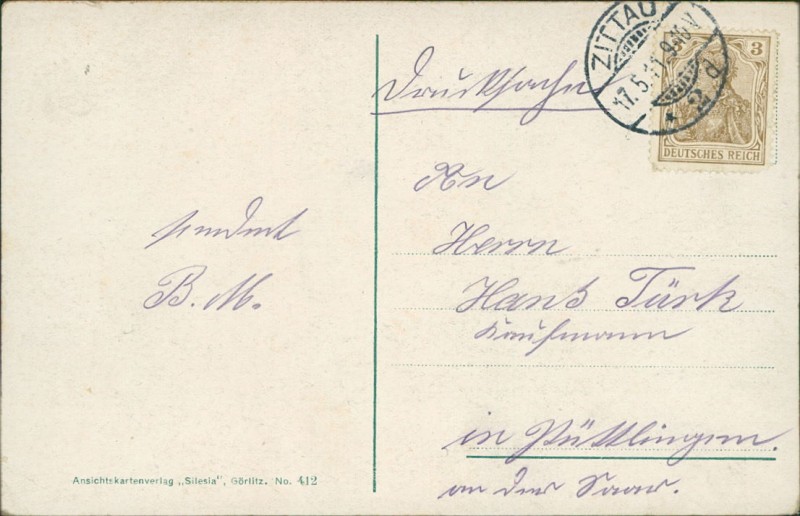 Drucksache
ZITTAU
17.5.11. 9-10 V
* 2 d
3
DEUTSCHES REICH
An
Herrn
Hans Türk
Kaufmann
in Püttlingen.
an der Saar.
sendet
B. M.
Ansichtskartenverlag „Silesia", Görlitz. No. 412